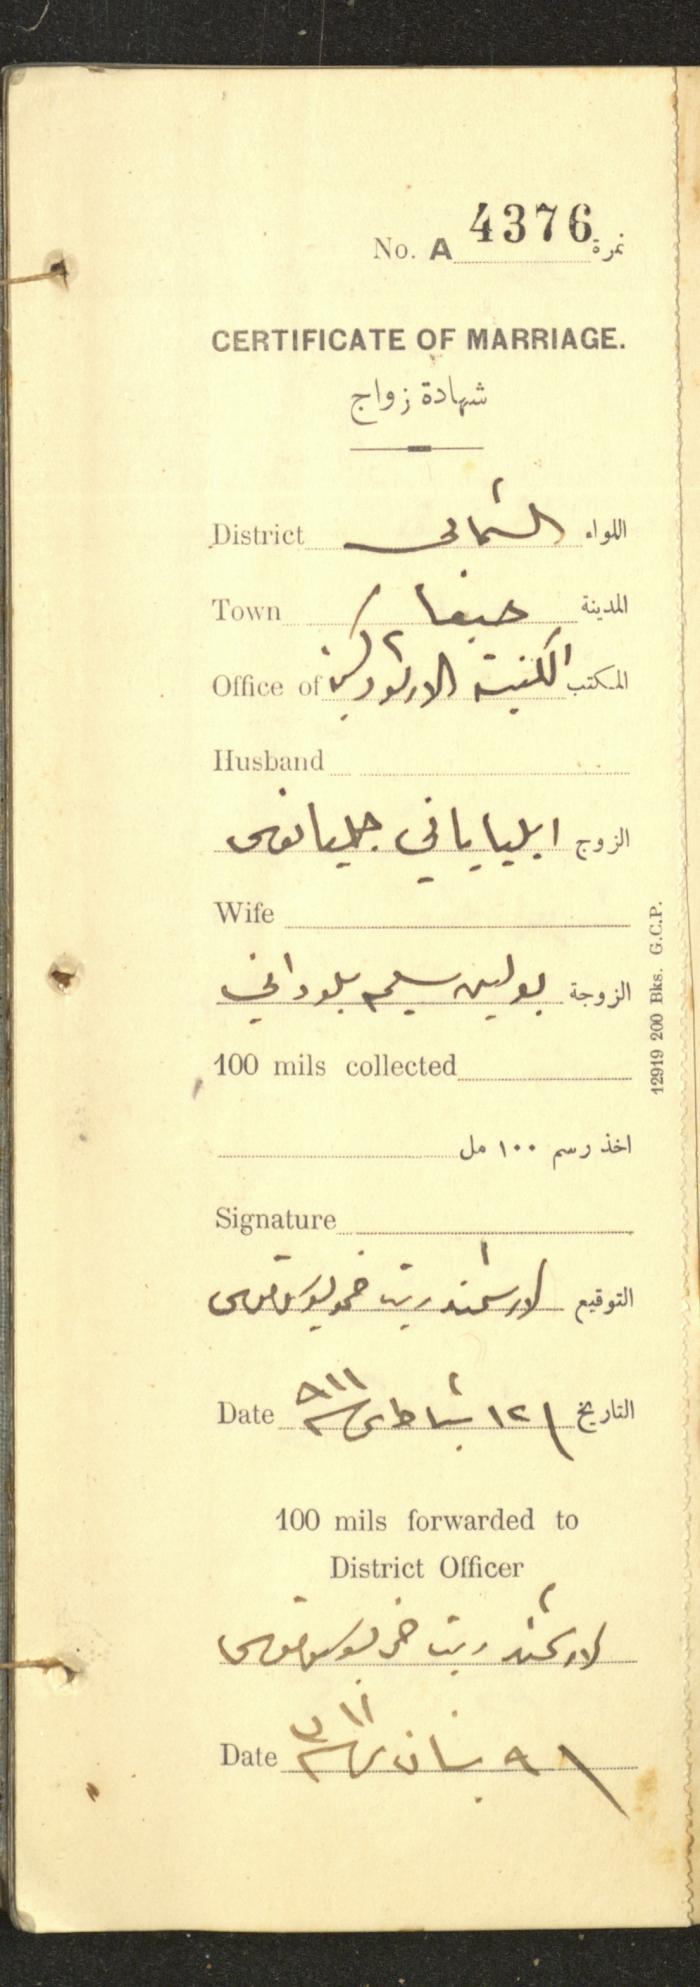 No. A 4376 نمرة
CERTIFICATE OF MARRIAGE.
شهادة زواج
District الشمالي اللواء
Town حيفا المدينة
Office of الكنيسة الارثوذكسية المكتب
Husband
ايليا ياني الزوج
Wife
بولين سليم بلوداني الزوجة
100 mils collected
اخذ رسم ١٠٠ مل
Signature
الارشمندريت التوقيع
Date ١٢ شباط التاريخ
100 mils forwarded to
District Officer
الارشمندريت
Date ٩ نيسان
12919 200 Bks. G.C.P.